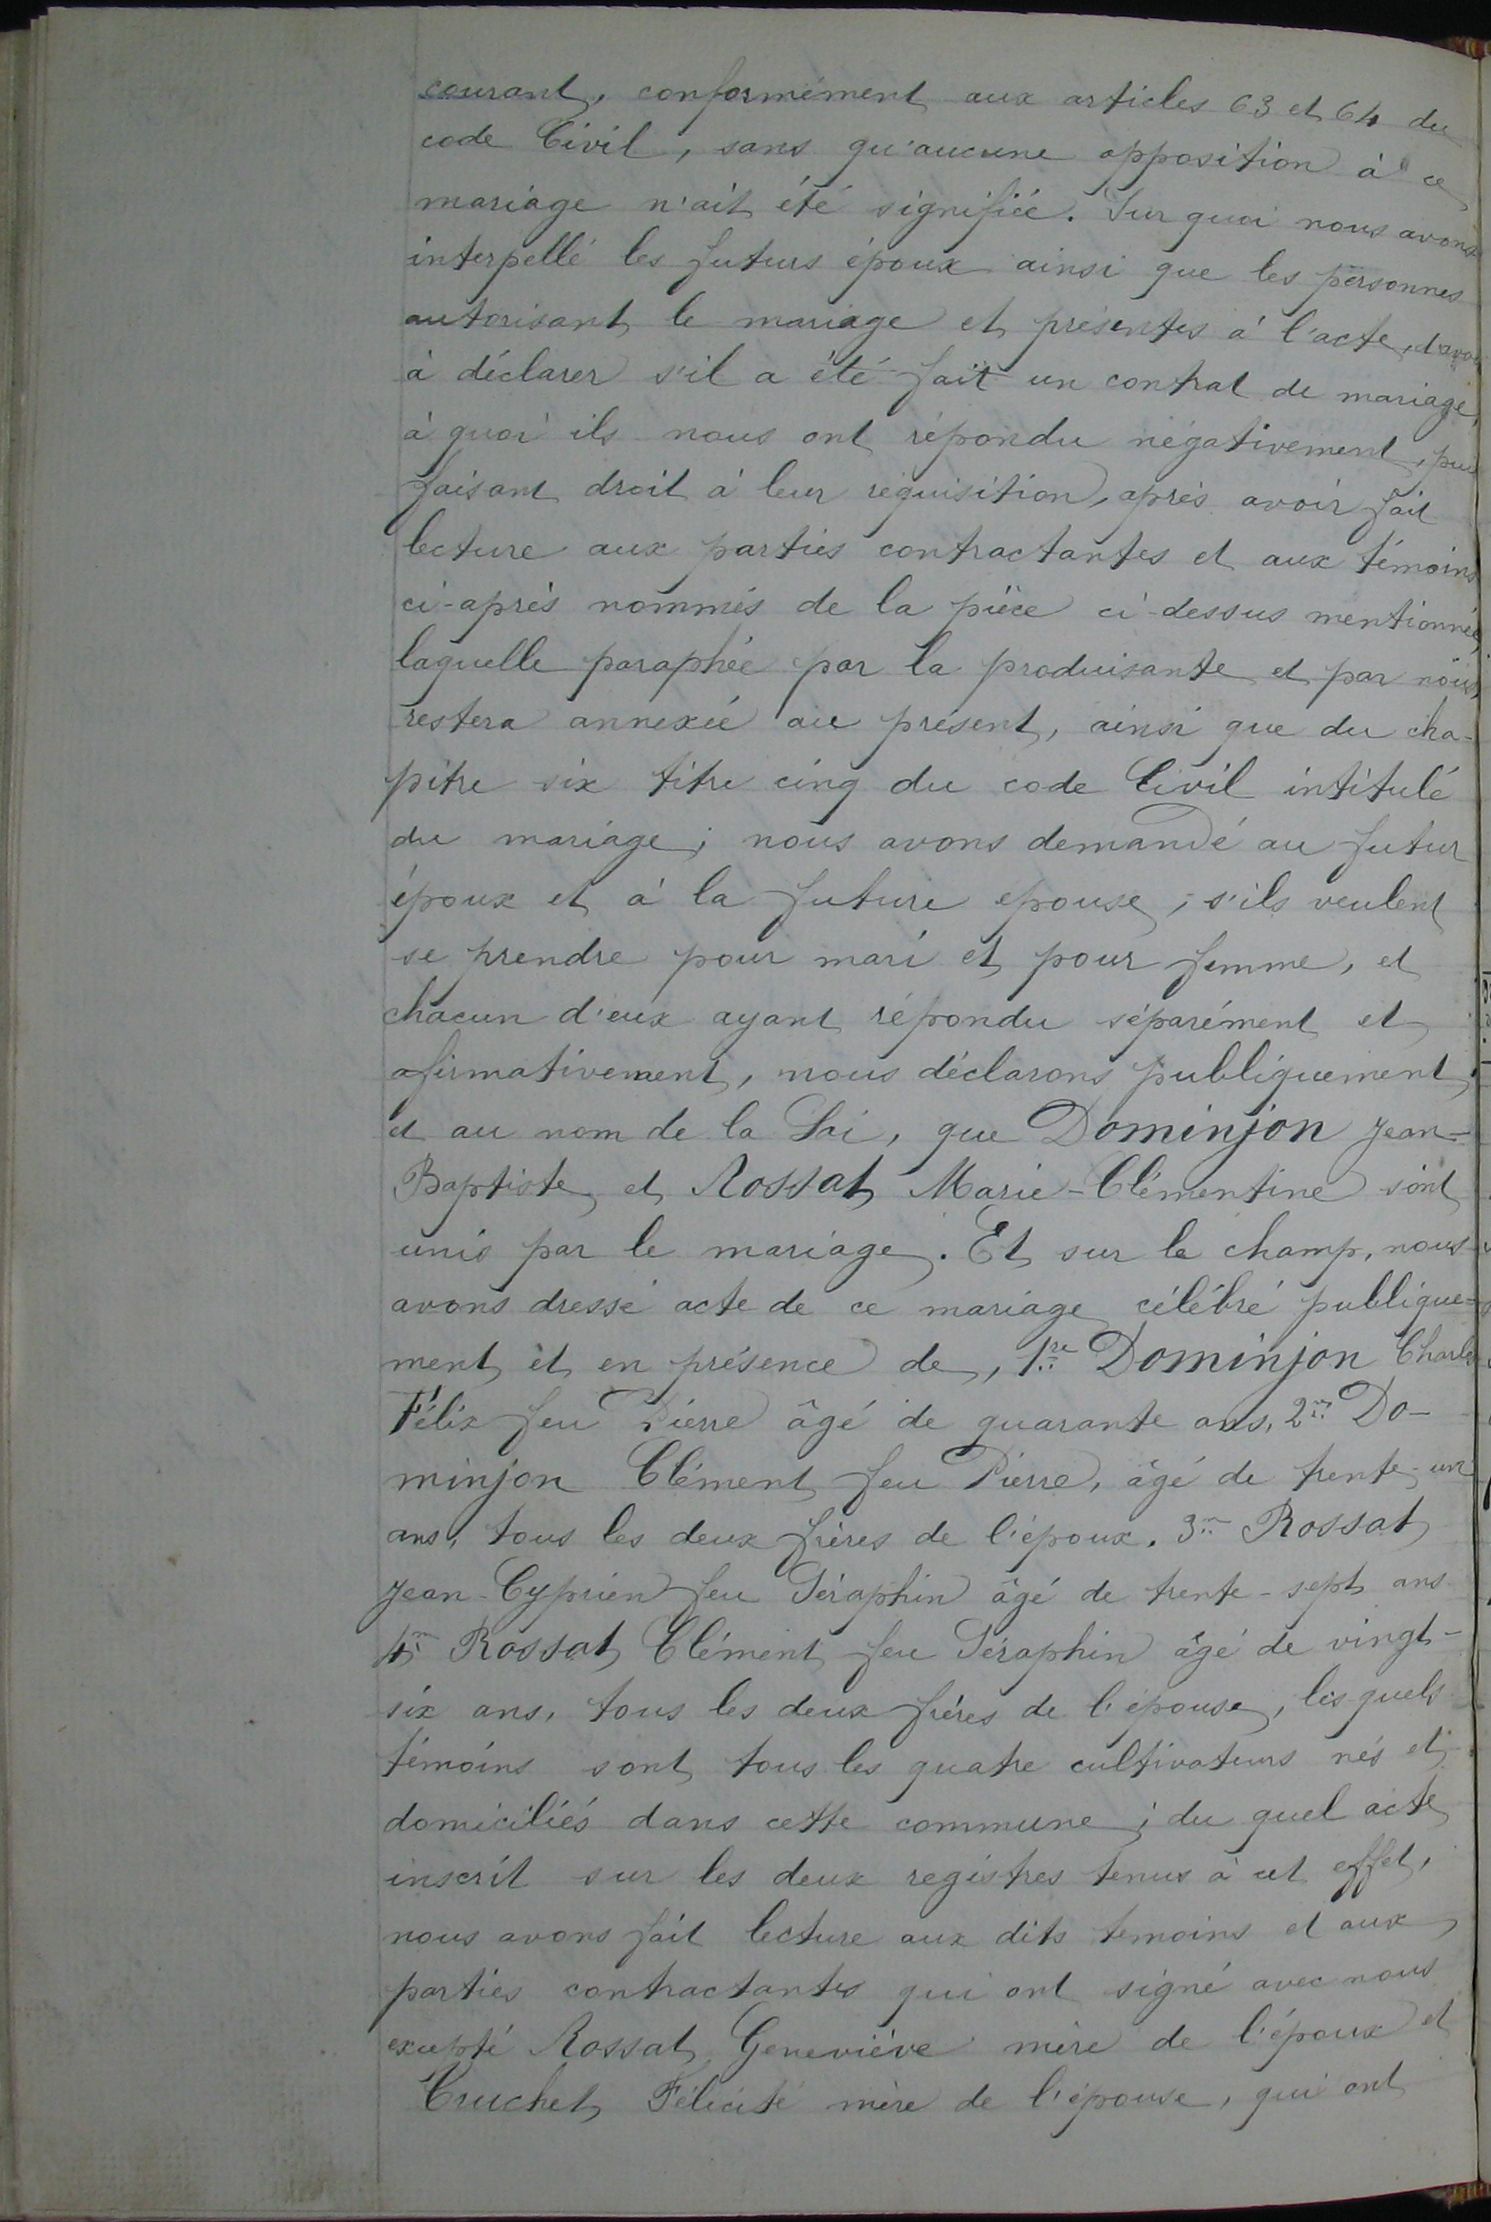 courant, conformément aux articles 63 et 64 du
code Civil, sans qu'aucune opposition à ce
mariage n'ait été signifiée. Sur quoi nous avons
interpellé les futurs époux ainsi que les personnes
autorisant le mariage et présentes à l'acte, d'avoir
à déclarer s'il a été fait un contrat de mariage,
à quoi ils nous ont répondu négativement, puis
faisant droit à leur réquisition, après avoir fait
lecture aux parties contractantes et aux témoins
ci-après nommés de la pièce ci-dessus mentionnée,
laquelle paraphée par la produisante et par nous,
restera annexée au présent, ainsi que du cha-
pitre six titre cinq du code Civil intitulé
du mariage; nous avons demandé au futur
époux et à la future epouse, s'ils veulent
se prendre pour mari et pour femme, et
chacun d'eux ayant répondu séparément et
afirmativement, nous déclarons publiquement
et au nom de la Loi, que Dominjon Jean-
Baptiste et Rossat Marie-Clémentine sont
unis par le mariage. Et sur le champ, nous
avons dressé acte de ce mariage célébré publique-
ment et en présence de, 1re Dominjon Charles
Félix feu Pierre âgé de quarante ans, 2me Do-
minjon Clément feu Pierre, âgé de trente-un
ans, tous les deux frères de l'époux. 3me Rossat
Jean-Cyprien feu Séraphin âgé de trente-sept ans
4me Rossat Clément feu Séraphin âgé de vingt-
six ans, tous les deux frères de l'épouse, les quels
témoins sont tous les quatre cultivateurs nés et
domiciliés dans cette commune; du quel acte
inscrit sur les deux registres tenus à cet effet,
nous avons fait lecture aux dits temoins et aux
parties contractantes qui ont signé avec nous
excepté Rossat Geneviève mère de l'époux et
Cruchet Félicité mère de l'épouse, qui ont